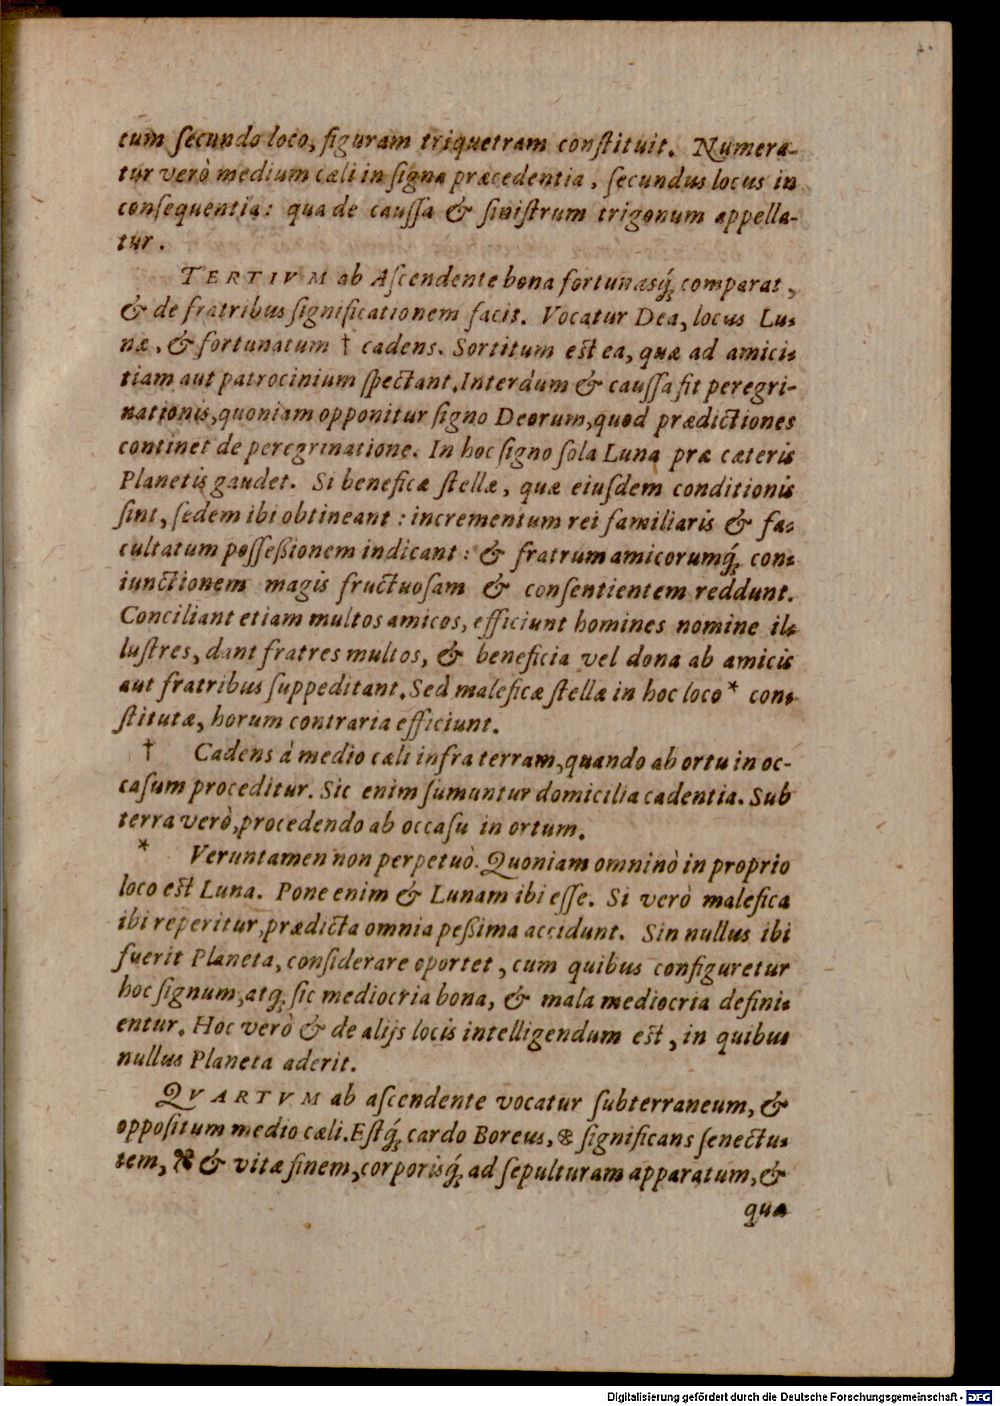 cum ſecundo loco, figuram triquetram conſtituit. Numera-
tur verò medium cæli in ſigna præcedentia, ſecundus locus in
conſequentia: qua de cauſſa & ſiniſtrum trigonum appella-
tur.
TERTIVM ab Aſcendente bona fortunasq́; comparat,
& de fratribus ſignificationem facit. Vocatur Dea, locus Lu-
næ, & fortunatum † cadens. Sortitum est ea, quæ ad amici-
tiam aut patrocinium ſpectant. Interdum & cauſſa fit peregri-
nationis, quoniam opponitur ſigno Deorum, quod prædictiones
continet de peregrinatione. In hoc ſigno ſola Luna præ cæteris
Planetis gaudet. Si beneficæ ſtellæ, quæ eiuſdem conditionis
ſint, ſedem ibi obtineant: incrementum rei familiaris & fa-
cultatum poſſeßionem indicant: & fratrum amicorumq́; con-
iunctionem magis fructuoſam & conſentientem reddunt.
Conciliant etiam multos amicos, efficiunt homines nomine il-
luſtres, dant fratres multos, & beneficia vel dona ab amicis
aut fratribus ſuppeditant. Sed maleficæ ſtellæ in hoc loco * con-
ſtitutæ, horum contraria efficiunt.
† Cadens à medio cæli infra terram, quando ab ortu in oc-
caſum proceditur. Sic enim ſumuntur domicilia cadentia. Sub
terra verò, procedendo ab occaſu in ortum.
* Veruntamen non perpetuò. Quoniam omninò in proprio
loco est Luna. Pone enim & Lunam ibi eſſe. Si verò malefica
ibi reperitur, prædicta omnia peßima accidunt. Sin nullus ibi
fuerit Planeta, conſiderare oportet, cum quibus configuretur
hoc ſignum, atq; ſic mediocria bona, & mala mediocria defini-
entur. Hoc verò & de alijs locis intelligendum est, in quibus
nullus Planeta aderit.
QVARTVM ab aſcendente vocatur ſubterraneum, &
oppoſitum medio cæli. Eſtq́; cardo Boreus, ſignificans ſenectu-
tem, & vitæ finem, corporisq́; ad ſepulturam apparatum, &
quæ
Digitalisierung gefördert durch die Deutsche Forschungsgemeinschaft - DFG